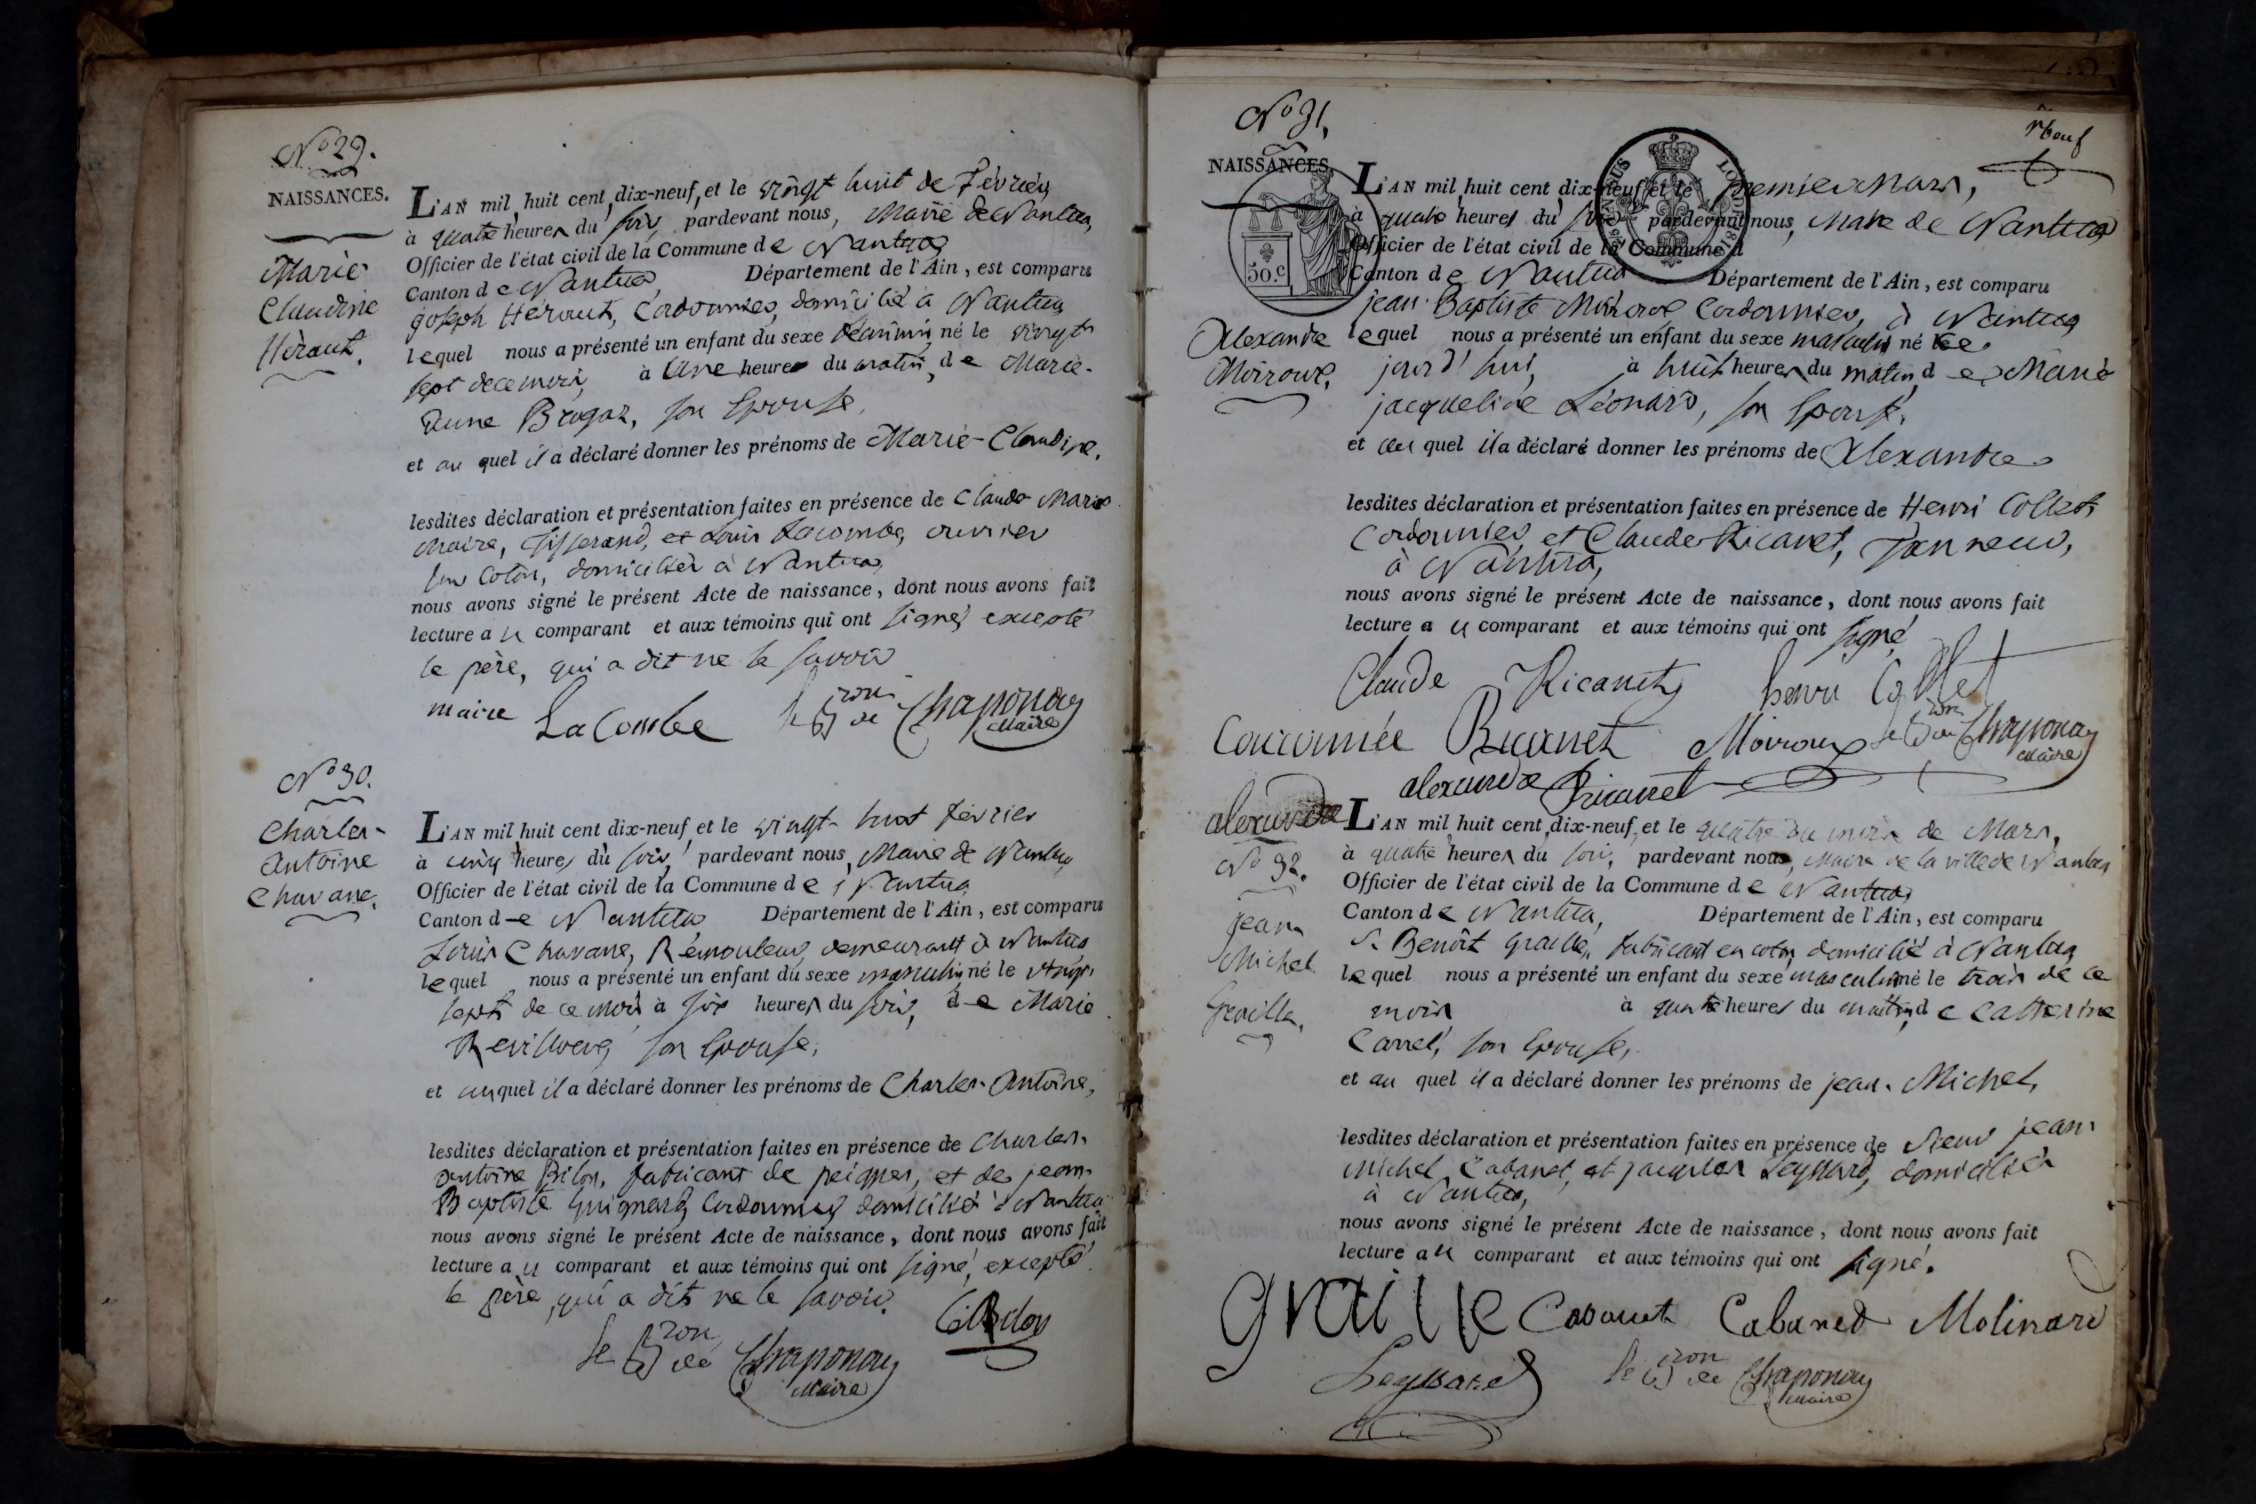 No 29.
NAISSANCES.
Marie
Claudine
Héraut.
L'AN mil huit cent dix-neuf, et le vingt huit de Février
à quatre heures du soir, pardevant nous, Maire de Nantua,
Officier de l'état civil de la Commune de Nantua
Canton de Nantua, Département de l'Ain, est comparu
joseph Héraut, Cordonnier, domicilié à Nantua
lequel nous a présenté un enfant du sexe féminin, né le vingt
sept de ce mois, à Une heures du matin, de Marie-
Brogat, son Epouse,
et au quel il a déclaré donner les prénoms de Marie-Claudine.
lesdites déclaration et présentation faites en présence de Claude Marie
Maire, Tisserand, et Louis Lacombe, ouvrier
sur Coton, domiciliés à Nantua,
nous avons signé le présent Acte de naissance, dont nous avons fait
lecture au comparant et aux témoins qui ont signé, excepté
le père, qui a dit ne le savoir
maire LaCombe le Bron de Chaponay
Maire
No 30.
Charles-
antoine
Chavane.
L'AN mil huit cent dix-neuf, et le vingt-huit février
à cinq heures du soir, pardevant nous, Maire de Nantua,
Officier de l'état civil de la Commune de Nantua
Canton de Nantua Département de l'Ain, est comparu
Louis Chavane, Rémouleur, demeurant à Nantua
lequel nous a présenté un enfant du sexe masculin, né le vingt
sept de ce mois à six heures du soir, de Marie
son Epouse,
et auquel il a déclaré donner les prénoms de Charles-Antoine,
lesdites déclaration et présentation faites en présence de Charles-
antoine Bilon, fabricant de peignes, et de jean-
Baptiste Guignard, Cordonnier domicilié à Nantua
nous avons signé le présent Acte de naissance, dont nous avons fait
lecture au comparant et aux témoins qui ont signé, excepté
le père, qui a dit ne le savoir.
le Bron de Chaponay
Maire
No 31.
NAISSANCES.
50.c
Alexandre
Moiroux.
L'AN mil huit cent dix-neuf, et le premier Mars,
à quatre heures du soir pardevant nous, Maire de Nantua
Officier de l'état civil de la Commune d
Canton de Nantua Département de l'Ain, est comparu
jean-Baptiste Moiroux Cordonnier, à Nantua
lequel nous a présenté un enfant du sexe masculin né ce
jourd'hui, à huit heures du matin, de Marie
jacqueline Léonard, son Epouse,
et au quel il a déclaré donner les prénoms de Alexandre
lesdites déclaration et présentation faites en présence de Henri Collet,
Cordonnier, et Claude Ricanet, Tanneur,
à Nantua,
nous avons signé le présent Acte de naissance, dont nous avons fait
lecture au comparant et aux témoins qui ont signé
Claude Ricanet henri Collet
Couronnée Ricanet Moiroux le Bron de Chaponay
Maire
alexandre Ricanet
alexandre
No 32.
jean
Michel
Graille.
L'AN mil huit cent dix-neuf, et le quatre du mois de Mars,
à quatre heures du soir, pardevant nous, Maire de la ville de Nantua
Officier de l'état civil de la Commune de Nantua,
Canton de Nantua, Département de l'Ain, est comparu
Sr Benoît Graille, fabricant en coton, domicilié à Nantua
lequel nous a présenté un enfant du sexe masculin né le trois de ce
mois à quatre heures du matin, de Catherine
Carrel, son Epouse,
et au quel il a déclaré donner les prénoms de jean-Michel,
lesdites déclaration et présentation faites en présence de Sieur jean-
Michel Cabanet, et jacques Leyssard, domiciliés
à Nantua,
nous avons signé le présent Acte de naissance, dont nous avons fait
lecture au comparant et aux témoins qui ont signé.
graille Cabanet Cabanet Molinard
Leyssard le Bron de Chaponay
Maire